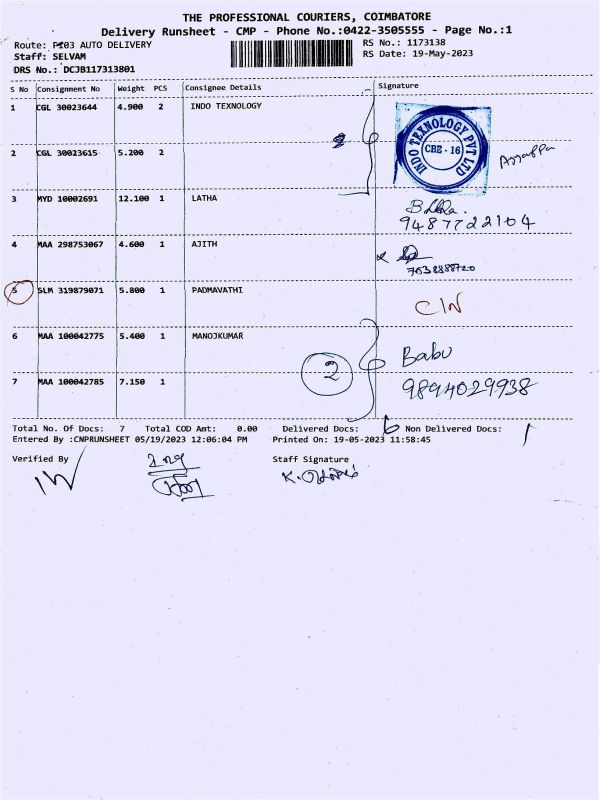 THE PROFESSIONAL COURIERS, COIMBATORE
Delivery Runsheet - CMP - Phone No.:0422-3505555 - Page No.:1
Route: P103 AUTO DELIVERY
RS No.: 1173138
Staff: SELVAM
RS Date: 19-May-2023
DRS No.: DCJB117313801
S No Consignment No Weight PCS Consignee Details Signature
1 CGL 30023644 4.900 2 INDO TEXNOLOGY
INDO TEXNOLOGY PVT LTD
CBE - 16
2 CGL 30023615 5.200 2
3 MYD 10002691 12.100 1 LATHA
9487722104
4 MAA 298753067 4.600 1 AJITH
5 SLM 319879071 5.800 1 PADMAVATHI
6 MAA 100042775 5.400 1 MANOJKUMAR Babu
2
7 MAA 100042785 7.150 1 9894029938
Total No. Of Docs: 7 Total COD Amt: 0.00 Delivered Docs: 6 Non Delivered Docs: 1
Entered By :CNPRUNSHEET 05/19/2023 12:06:04 PM Printed On: 19-05-2023 11:58:45
Verified By Staff Signature